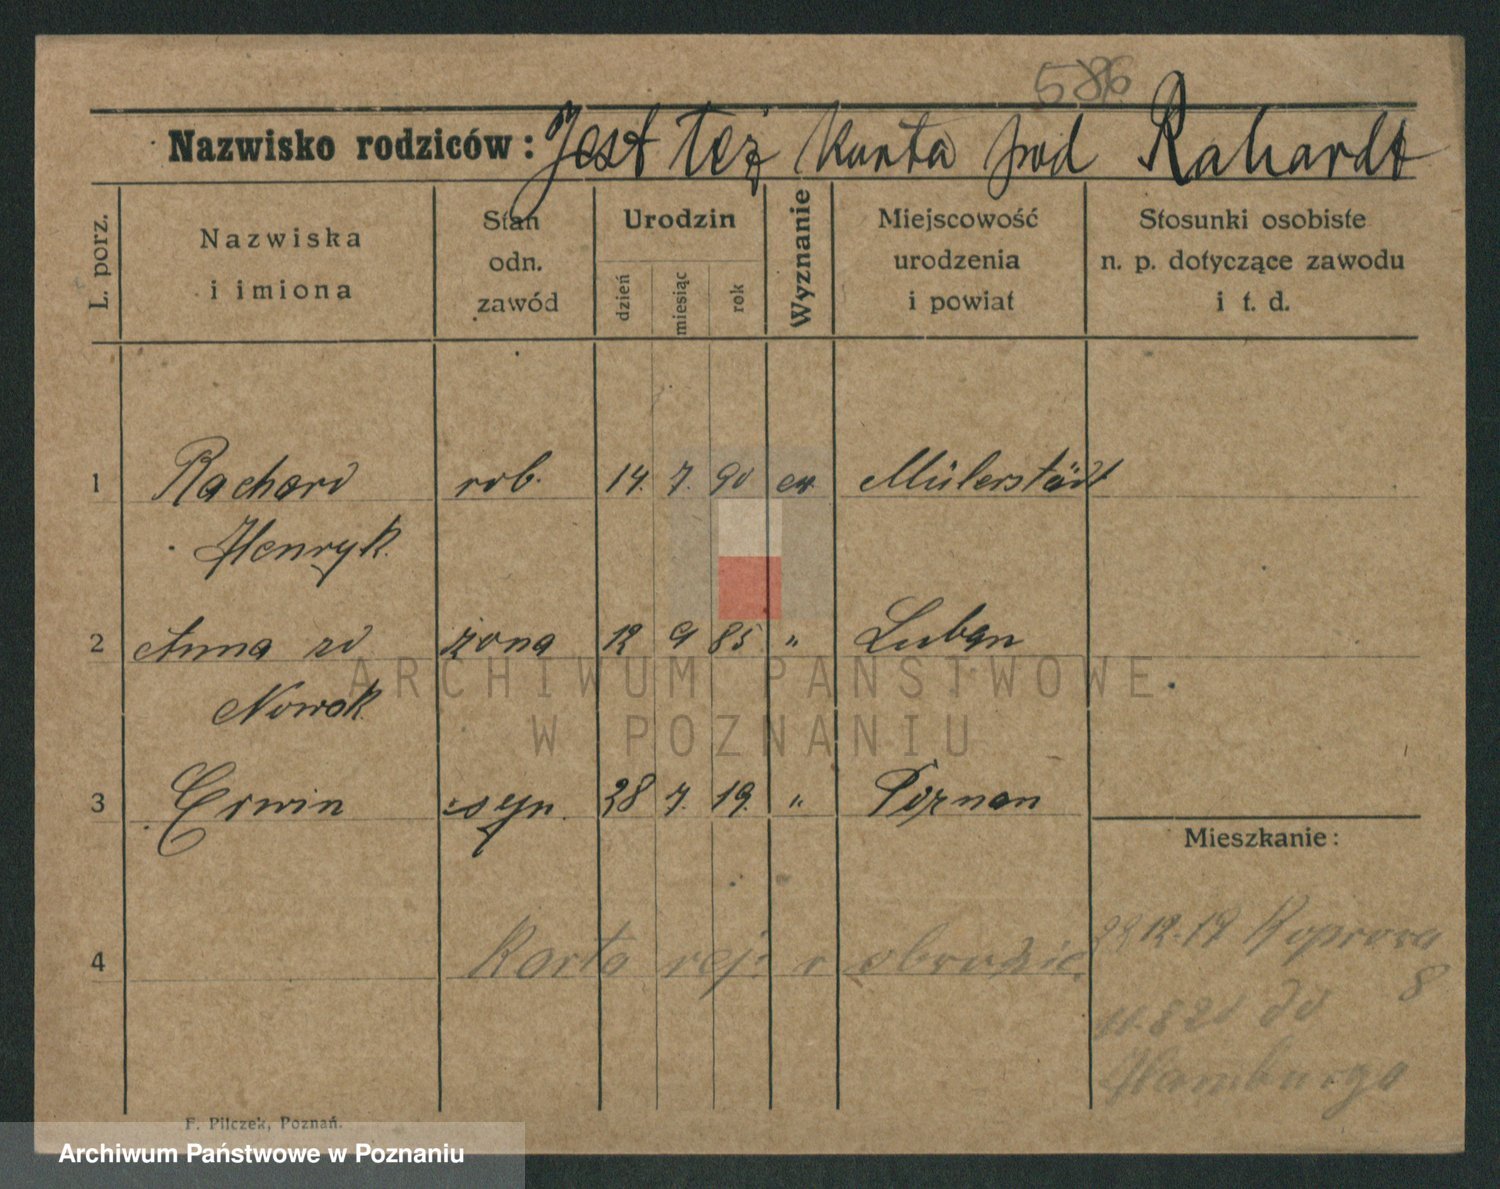 586
Nazwisko rodziców: Jest też karta pod Rahardt
L. porz.
Nazwiska
i imiona
Stan
odn.
zawód
Urodzin
dzień
miesiąc
rok
Wyznanie
Miejscowość
urodzenia
i powiat
Stosunki osobiste
n. p. dotyczące zawodu
i t. d.
1 Rachard rob. 14. 7. 90 ew. Mülerstädt
Henryk.
2 Anna zd żona 12 9 85 " Luban
Nowak
ARCHIWUM PAŃSTWOWE
W POZNANIU
3 Erwin syn. 28 7. 19. " Poznan
Mieszkanie:
4 Karta rej.
12.19 8
do
Hamburga
F. Pilczek, Poznań.
Archiwum Państwowe w Poznaniu